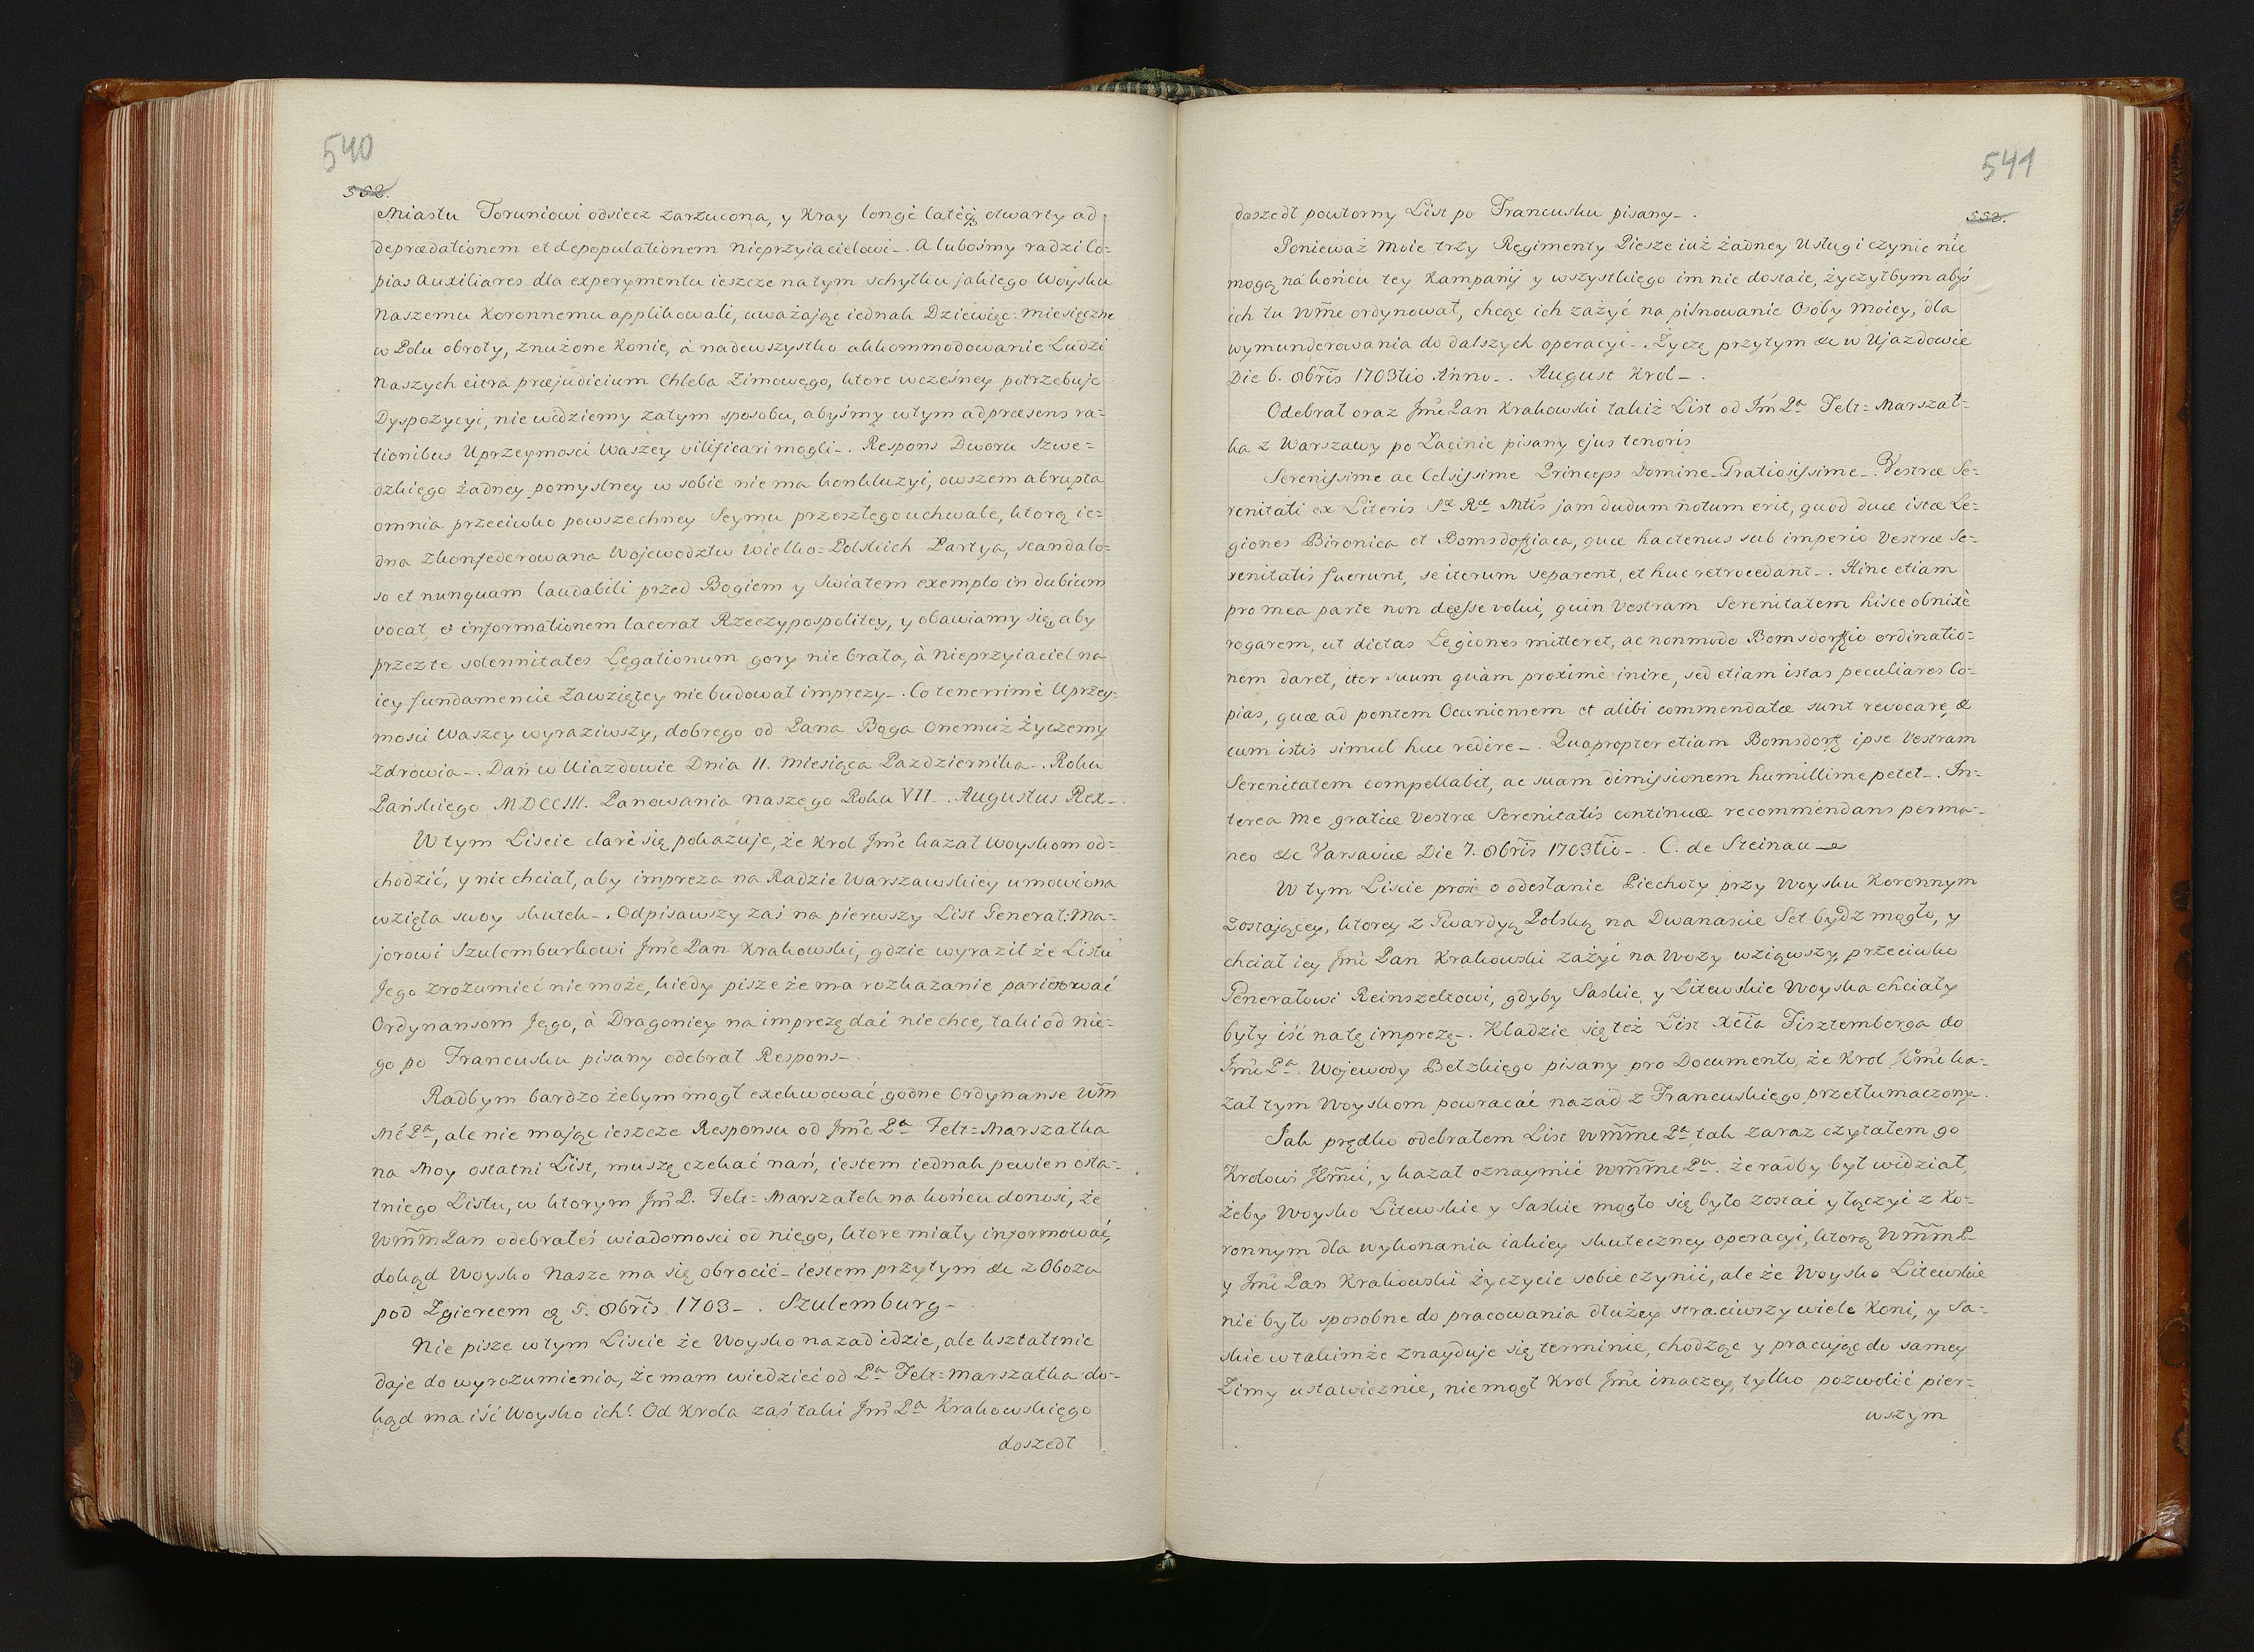 540
552.
Miastu Toruniowi odsiecz zarzucona, y Kray longè latéq; otwarty ad
deprædationem et depopulationem Nieprzyiacielowi_. A lubośmy radzi Co=
pias Auxiliares dla experymentu ieszcze na tym schyłku jakiego Woysku
Naszemu Koronnemu applikowali, uważając iednak Dziewięć=miesięczne
w Polu obroty, znużone Konie, à nadewszystko akkommodowanie Ludzi
Naszych citra præjudicium Chleba Zimowego, ktore wcześney potrzebuje
Dyspozycyi, nie widziemy zatym sposobu, abyśmy w tym ad præsens ra=
tionibus Uprzeymosci Waszey vilificari mogli_. Respons Dworu Szwe=
dzkiego żadney pomyslney w sobie nie ma konkluzyi, owszem abrupta
omnia przeciwko powszechney Seymu przeszłego uchwale, ktorą ie=
dna Zkonfederowana Wojewodztw Wielko=Polskich Partya, scandalo=
so et nunquam laudabili przed Bogiem y Swiatem exemplo in dubium
vocat, et informationem lacerat Rzeczypospolitey, y obawiamy się, aby
przez te solennitates Legationum gory nie brała, à Nieprzyiaciel na
iey fundamencie Zawziętey nie budował imprezy_. Co tenerrimè Uprzey=
mosci Waszey wyraziwszy, dobrego od Pana Boga Onemuż życzemy
Zdrowia_. Dań w Uiazdowie Dnia 11. Miesiąca Pazdziernika_. Roku
Pańskiego MDCCIII. Panowania Naszego Roku VII_. Augustus Rex_.
W tym Liscie clarè się pokazuje, że Krol Jmc kazał Woyskom od=
chodzić, y nie chciał, aby impreza na Radzie Warszawskiey umowiona
wzięła swoy skutek_. Odpisawszy zaś na pierwszy List General:Ma=
jorowi Szulemburkowi Jmc Pan Krakowski, gdzie wyraził że Listu
Jego zrozumieć nie może, kiedy pisze że ma rozkazanie parierować
Ordynansom Jego, à Dragoniey na imprezę dać nie chce, taki od nie=
go po Francusku pisany odebrał Respons_.
Radbym bardzo żebym mogł exekwować godne Ordynanse Wm̃
Mć Pa, ale nie mając ieszcze Responsu od Jmc Pa Felt=Marszałka
na Moy ostatni List, muszę czekać nań, iestem iednak pewien osta=
tniego Listu, w ktorym Jm̃ P. Felt=Marszałek na końcu donosi, że
Wm̃m̃ Pan odebrałeś wiadomosci od niego, ktore miały informować,
dokąd Woysko Nasze ma się obrocić_ iestem przytym &c z Obozu
pod Zgiercem 5. 8bris 1703_. Szulemburg_
Nie pisze w tym Liscie że Woysko nazad idzie, ale kształtnie
daje do wyrozumienia, że mam wiedzieć od Pa Felt=Marszałka do=
kąd ma iść Woysko ich! Od Krola zaś taki Jm̃ Pa Krakowskiego
doszedł
541
553.
doszedł powtorny List po Francusku pisany_.
Ponieważ Moie trzy Regimenty Piesze iuż żadney Usługi czynić nie
mogą na końcu tey Kampanij y wszystkiego im nie dostaie, życzyłbym abyś
ich tu Wm̃c ordynował, chcąc ich zażyć na pilnowanie Osoby Moiey, dla
wymunderowania do dalszych operacyi_. Życzę przytym &c w Ujazdowie
Die 6. 8bris 1703tio Anno_. August Krol_.
Odebrał oraz Jmc Pan Krakowski takiż List od Jm̃ Pa Felt=Marszał=
ka z Warszawy po Łacinie pisany ejus tenoris
Serenissime ac Celsissime Princeps Domine Gratiosissime_. Vestræ Se=
renitati ex Literis Sæ Ræ Mtis jam dudum notum erit, quod duæ istæ Le=
giones Bironica et Bomsdorffiaca, quæ hactenus sub imperio Vestræ Se=
renitatis fuerunt, se iterum separent, et huc retrocedant_. Hinc etiam
pro mea parte non deesse volui, quin Vestram Serenitatem hisce obnixè
rogarem, ut dictas Legiones mitteret, ac non modo Bomsdorffio ordinatio=
nem daret, iter suum quàm proximè inire, sed etiam istas peculiares Co=
pias, quæ ad pontem Ocuniensem et alibi commendatæ sunt revocare, &
cum istis simul huc redire_. Quapropter etiam Bomsdorff ipse Vestram
Serenitatem compellabit, ac suam dimissionem humillime petet_. In=
terea me gratiæ Vestræ Serenitatis continuæ recommendans perma=
neo &c Varsaviæ Die 7. 8bris 1703tio_. C. de Steinau_
W tym Liscie prosi o odesłanie Piechoty przy Woysku Koronnym
Zostającey, ktorey z Gwardyą Polską na Dwanascie Set bydz mogło, y
chciał iey Jmc Pan Krakowski zażyć na Wozy wziąwszy, przeciwko
Generałowi Reinszeltowi, gdyby Saskie y Litewskie Woyska chciały
były iść na tę imprezę_. Kładzie się też List Xcia Fisztemberga do
Jmci Pa. Wojewody Bełzkiego pisany pro Documento, że Krol Jkm̃c ka=
zał tym Woyskom powracać nazad z Francuskiego przetłumaczony_.
Jak prędko odebrałem List Wm̃m̃c Pa, tak zaraz czytałem go
Krolowi Jkm̃ci, y kazał oznaymić Wm̃m̃c Pa. że radby był widział,
żeby Woysko Litewskie y Saskie mogło się było zostać y łączyć z Ko=
ronnym dla wykonania iakiey skuteczney operacyi, ktorą Wm̃m̃ P.
y Jmc Pan Krakowski życzycie sobie czynić, ale że Woysko Litewskie
nie było sposobne do pracowania dłużey straciwszy wiele Koni, y Sa=
skie w takimże znayduje się terminie, chodząc y pracując do samey
Zimy ustawicznie, nie mogł Krol Jmc inaczey, tylko pozwolić pier=
wszym